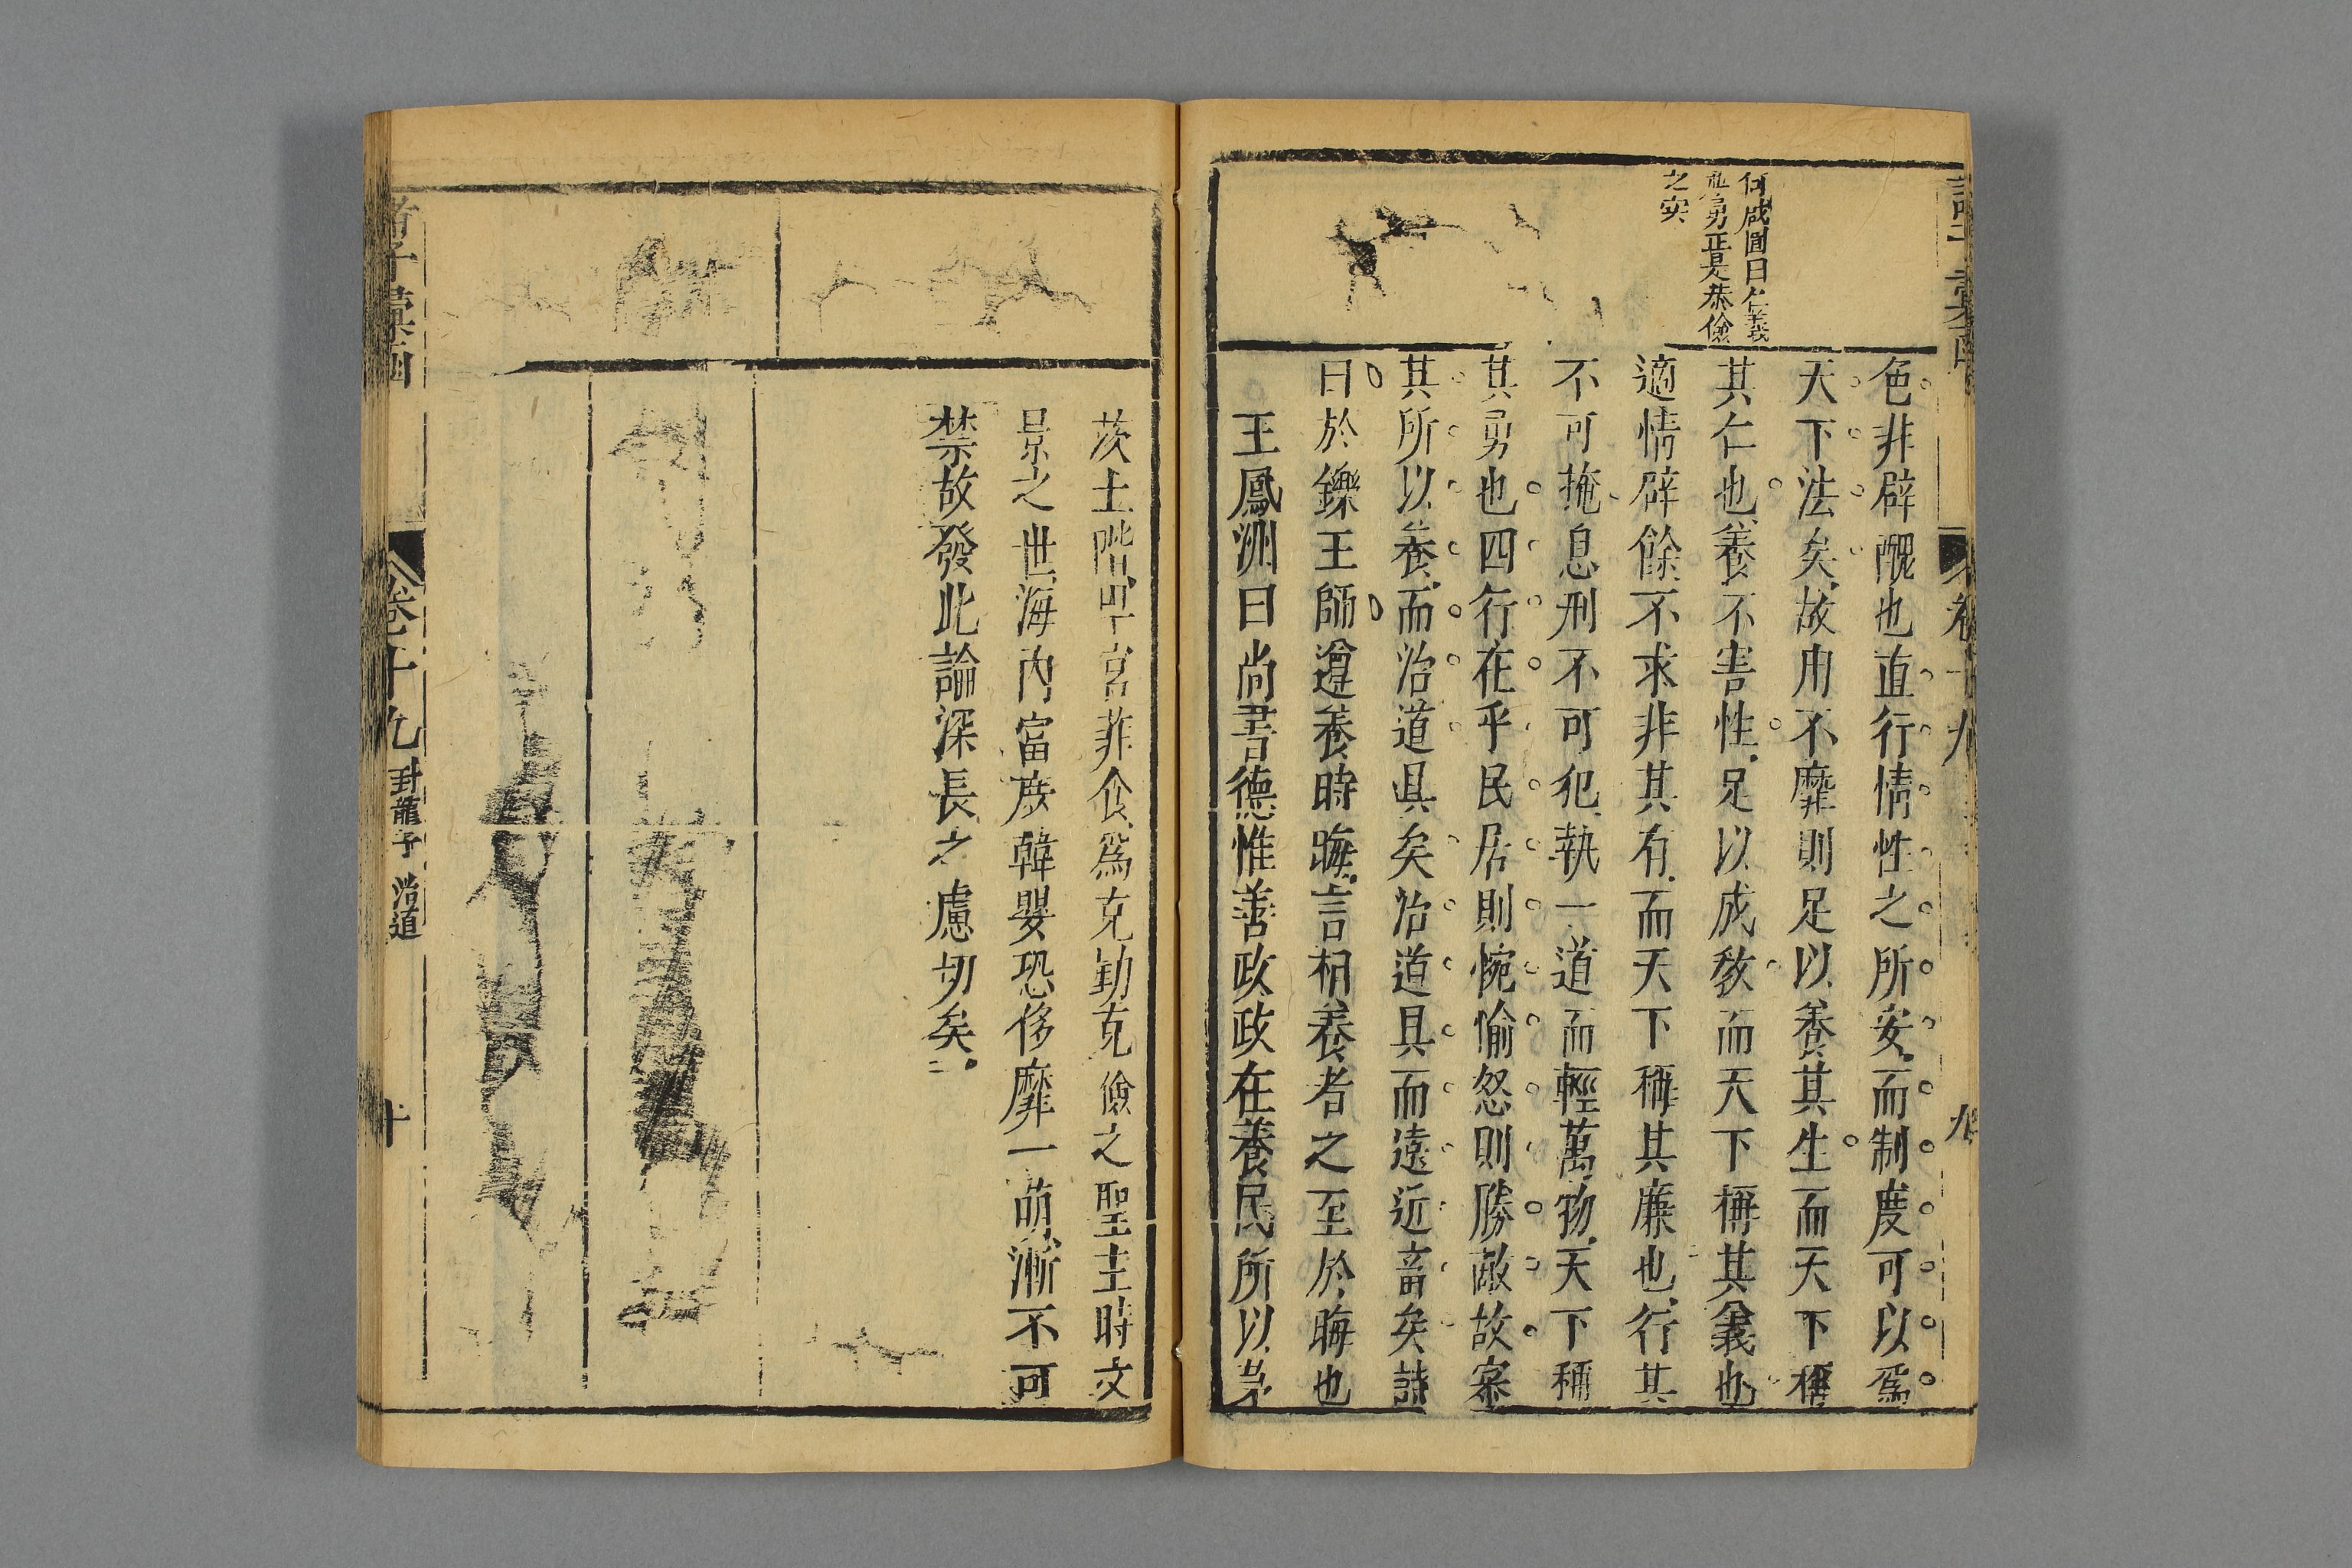 何咸圃曰仁義
亷勇正是恭儉
之实
色非辟醜也直行情性之所安而制度可以爲
天下法矣故用不靡則足以養其生而天下稱
其仁也養不害性足以成敎而天下稱其義也
適情辟餘不求非其有而天下稱其廉也行其
不可掩息刑不可犯執一道而輕萬物天下稱
其勇也四行在乎民居則惋愉怒則勝敵故案
其所以養而治道具矣治道具而遠近畜矣詩
曰於鑠王師遵養時晦言相養者之至於晦也
王鳳洲曰尚書德惟善政政在養民所以茅
茨土階卑宮菲食爲克勤克儉之聖主時文
景之世海內富庶韓嬰恐侈靡一萌漸不可
禁故發此論深長之慮切矣
卷十九
九
卷十九 封龍子 治道
十